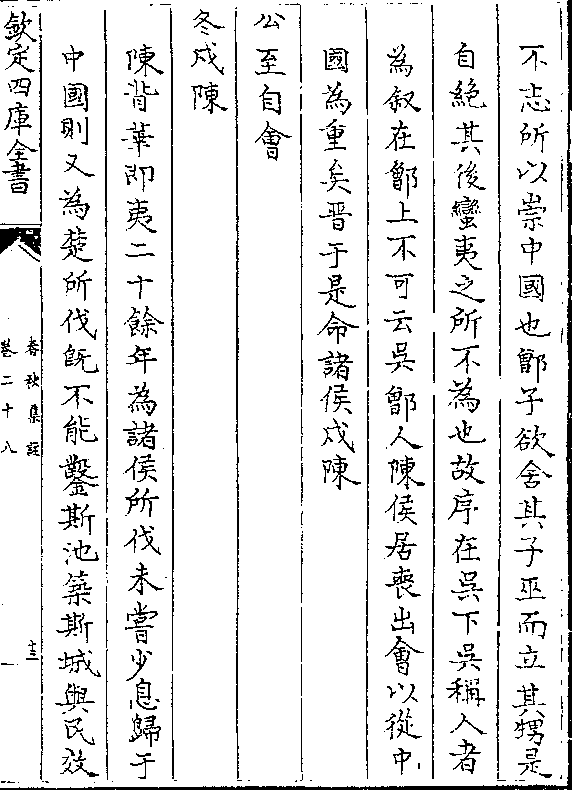 不志所以崇中國也鄫子欲舍其子巫而立其甥是
自絶其後蠻夷之所不為也故序在吳下吳稱人者
為叙在鄫上不可云吳鄫人陳侯居喪出會以從中
國為重矣晉于是命諸侯戍陳
公至自會
冬戍陳
陳背華即夷二十餘年為諸侯所伐未嘗少息歸于
中國則又為楚所伐旣不能鑿斯池築斯城與民效
欽定四庫全書
春秋集註
卷二十八
十三